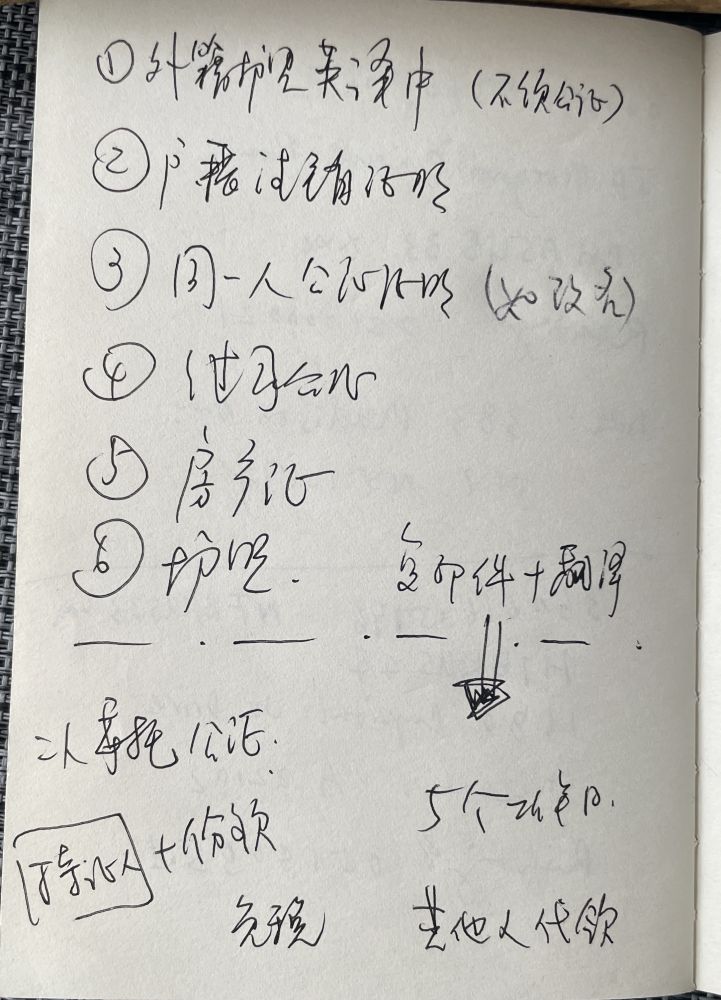 ① 外籍护照英译中 (不须公证)
② 户籍注销证明
③ 同一人公证证明 (如改名)
④ 继承公证
⑤ 房产证
⑥ 护照. 复印件+翻译
二人委托公证.
5个工作日.
持证人 + 份额
免税 其他人代领